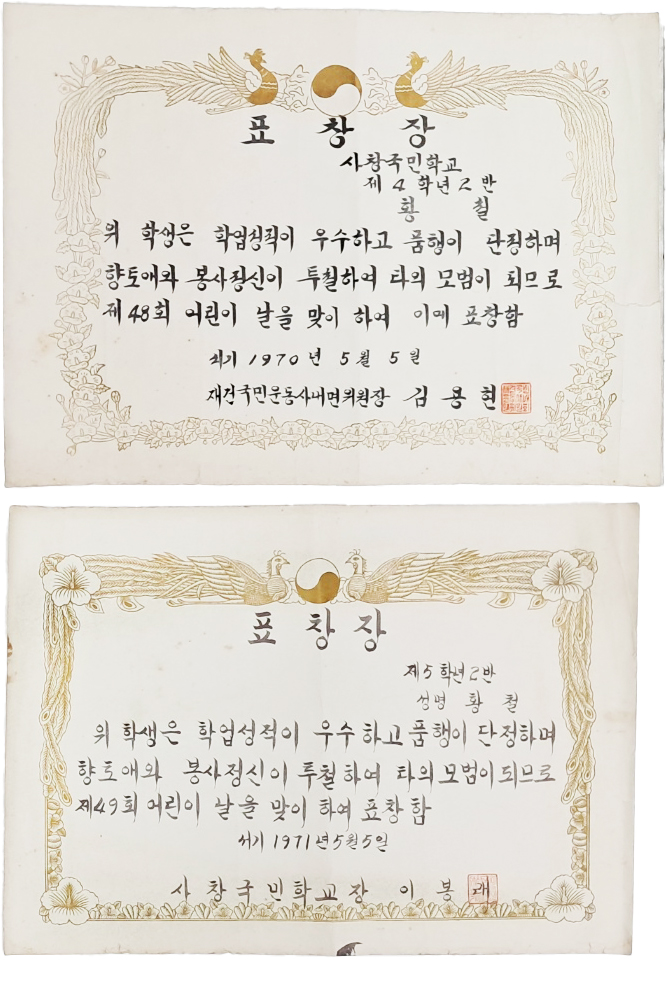 표창장
사창국민학교
제 4 학년 2 반
황 철
위 학생은 학업성적이 우수하고 품행이 단정하며
향토애와 봉사정신이 투철하여 타의 모범이 되므로
제48회 어린이 날을 맞이 하여 이에 표창함
서기 1970 년 5 월 5 일
재건국민운동사내면위원장 김용현
표창장
제5학년2반
성명 황 철
위 학생은 학업성적이 우수하고 품행이 단정하며
향토애와 봉사정신이 투철하여 타의 모범이 되므로
제49회 어린이 날을 맞이 하여 표창함
서기 1971년 5월 5일
사창국민학교장 이봉래